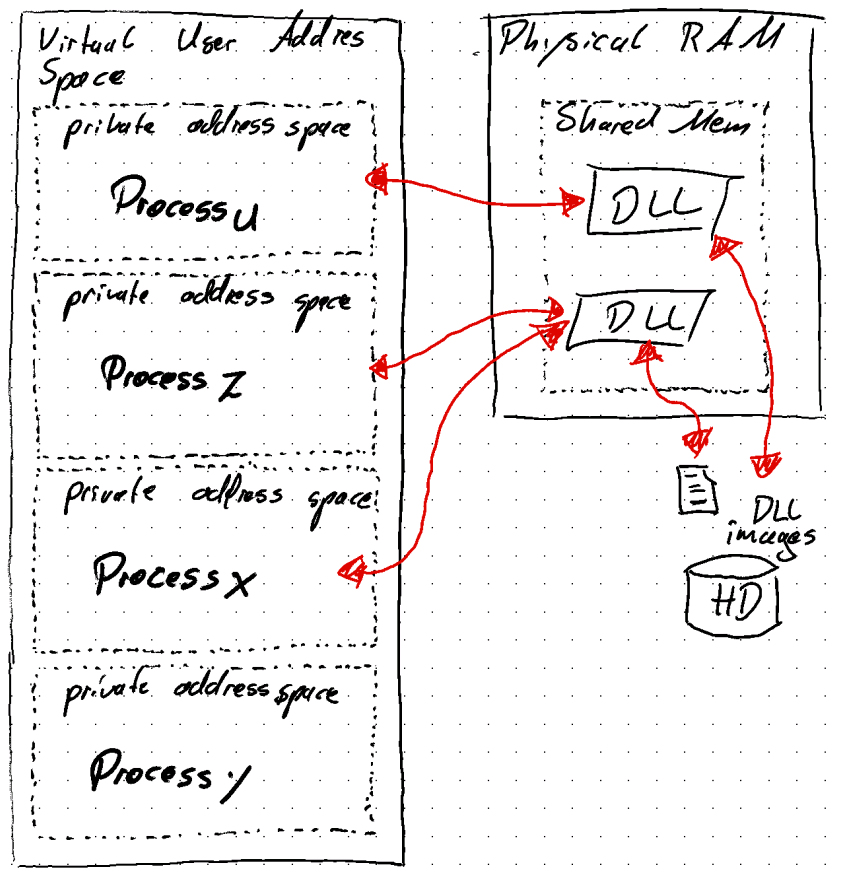 Virtual User Addres
Space
private address space
Process U
private address space
Process Z
private address space
Process X
private address space
Process Y
Physical RAM
Shared Mem
DLL
DLL
DLL
images
HD